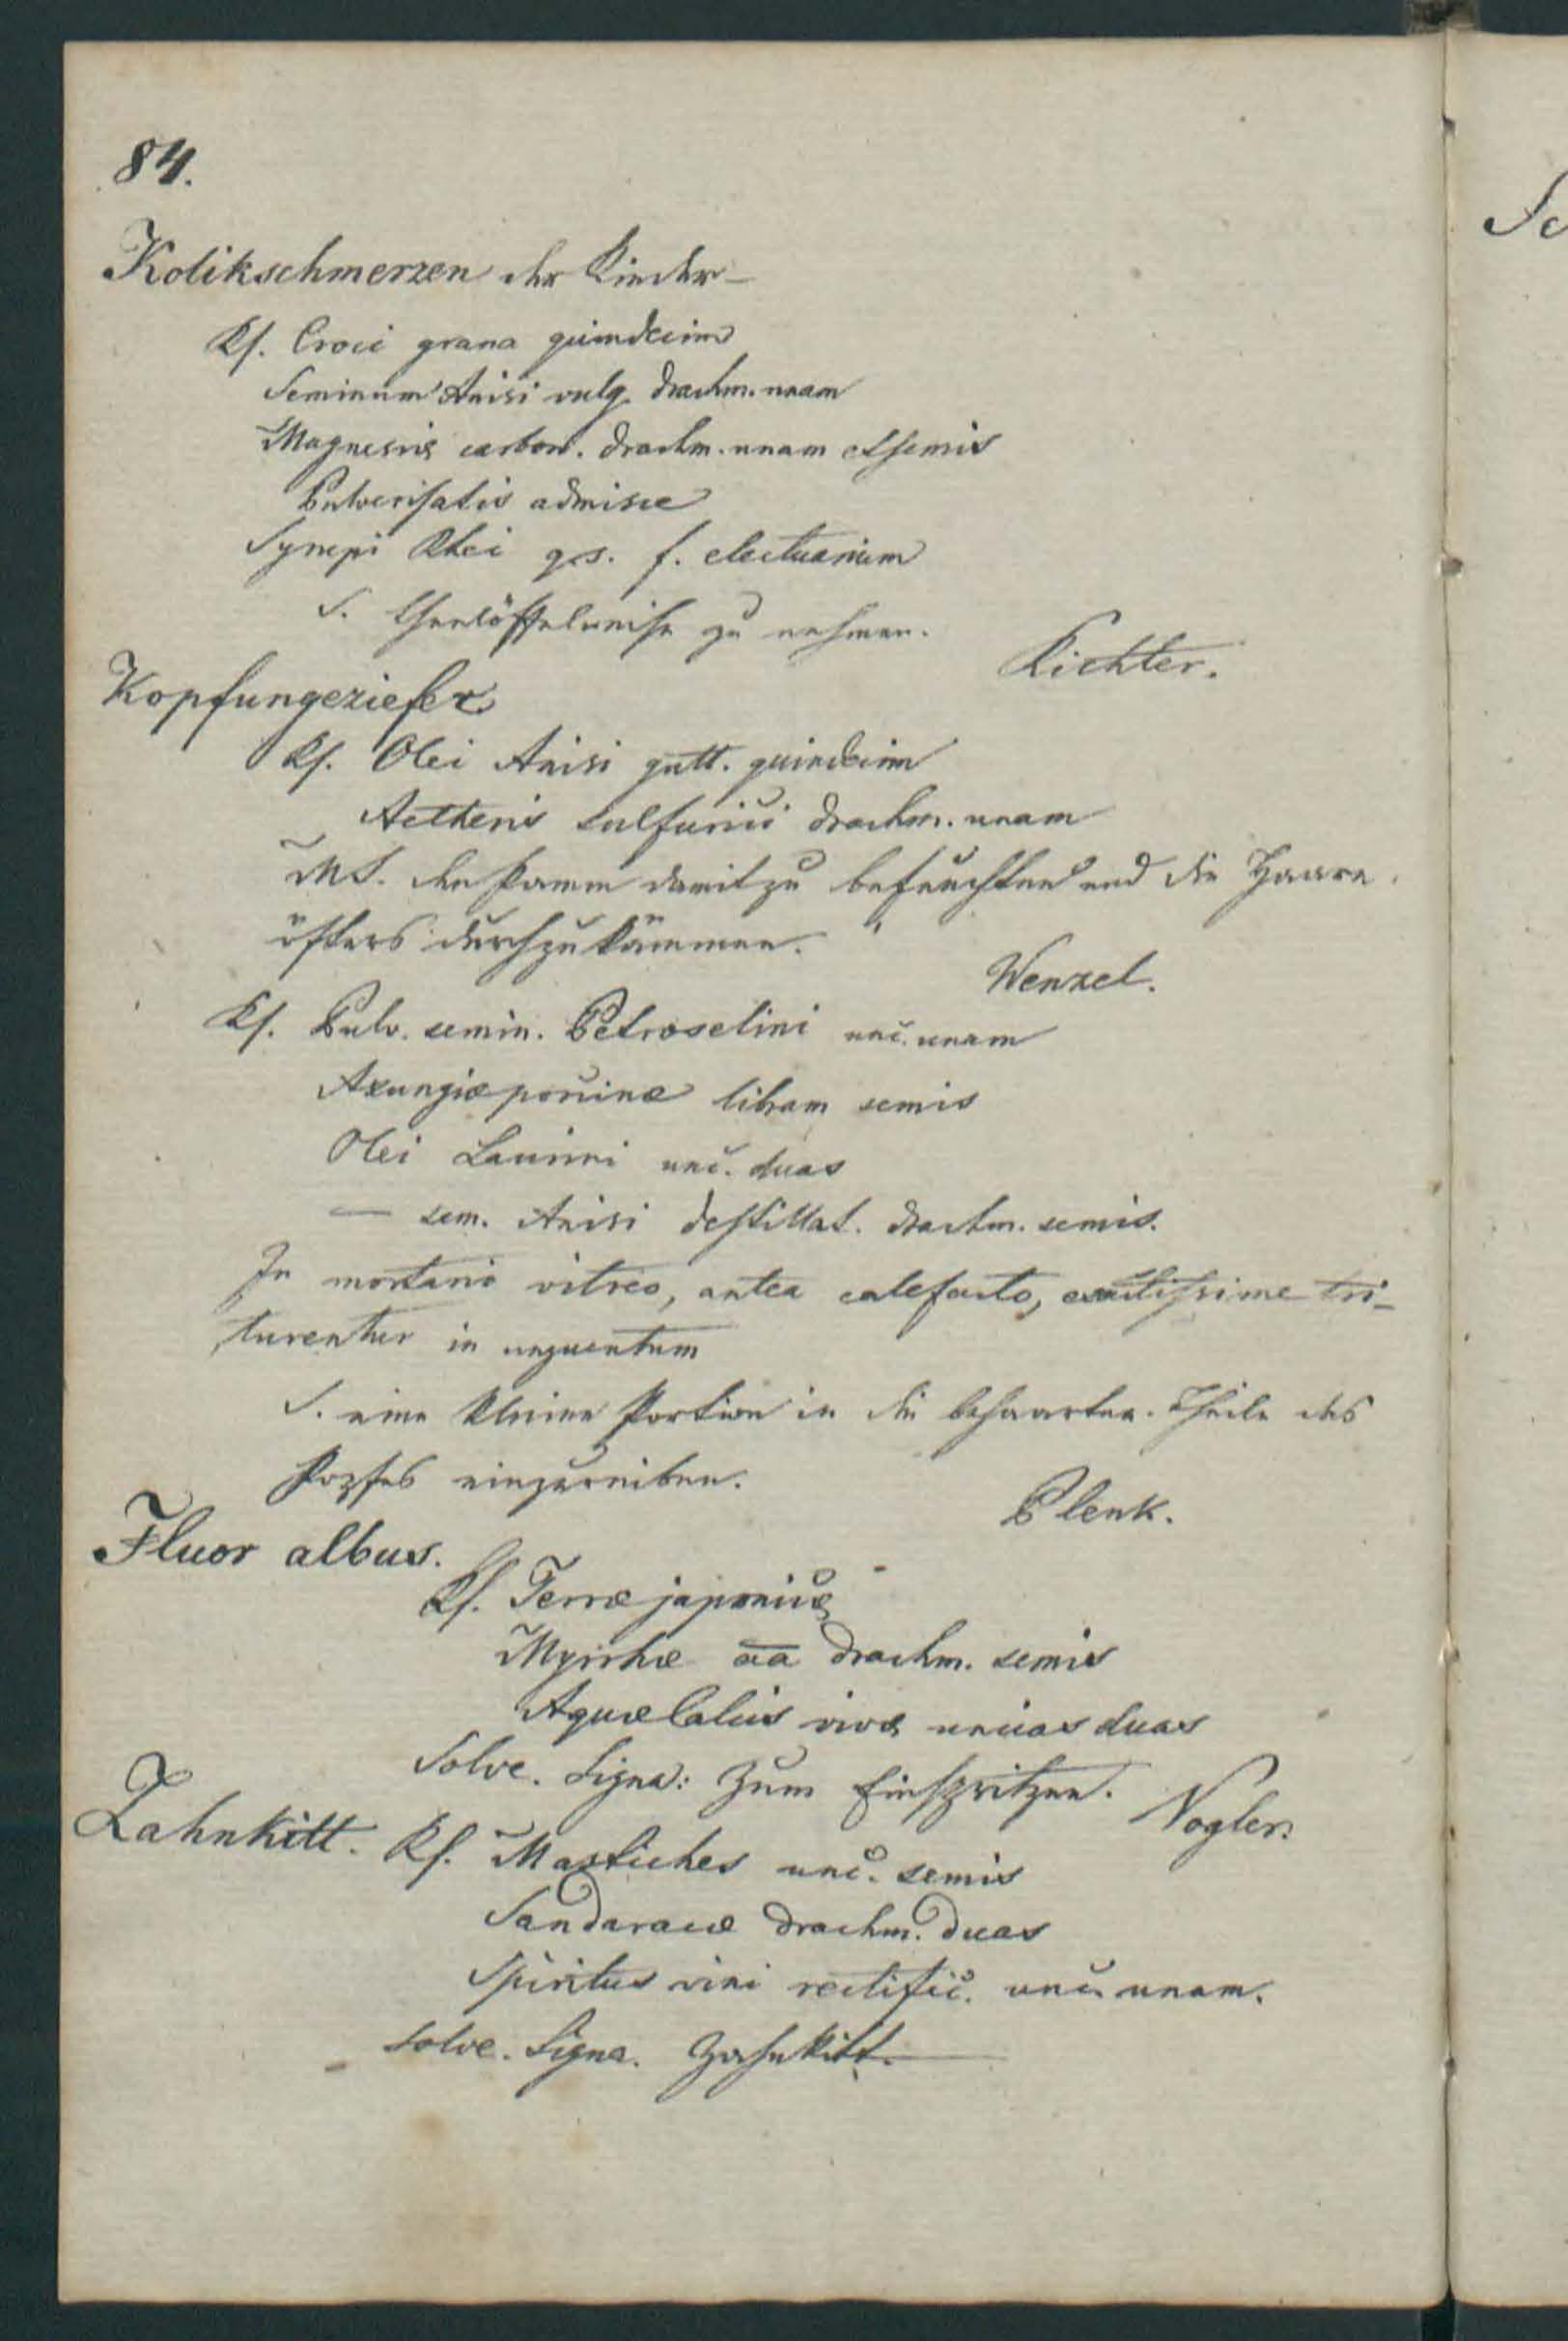 84.
Kolikschmerzen der Kinder–
Rf. Croci grana quindecim
Seminum Anisi vulg. drachm. unam
Magnesiæ carbon. drachm. unam et semis
Pulverisatis admisce
Syrupi Rhei q.s. f. electuarium
S. Theelöffelweise zu nehmen.
Richter.
Kopfungeziefer
Rf. Olei Anisi gutt. quindecim
Aetheris sulfurici drachm. unam
MS. den Kamm damit zu befeuchten und die Haare
öfters durchzukämmen.
Wenzel.
Rf. Pulv. semin. Petroselini unc. unam
Axungiæ porcinæ libram semis
Olei Laurini unc. duas
— sem. Anisi destillat. drachm. semis.
In mortario vitreo, antea calefacto, exactissime tri-
turentur in unguentum
S. eine kleine Portion in die behaarten Theile des
Kopfes einzureiben.
Plenk.
Fluor albus.
Rf. Terræ japonicæ
Myrrhæ aa drachm. semis
Aquæ Calcis vivæ uncias duas
Solve. Signa: Zum Einspritzen.
Vogler.
Zahnkitt. Rf. Mastiches unc. semis
Sandaracæ drachm. duas
Spiritus vini rectific. unc. unam.
Solve. Signa. Zahnkitt.
Sc